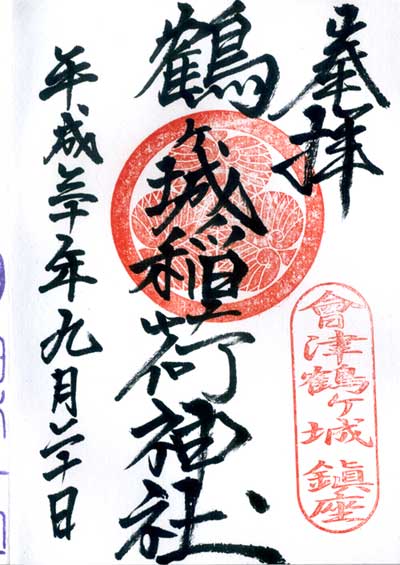 奉拝
會津鶴ヶ城 鎮座
鶴ヶ城稲荷神社
平成三十年九月二十日